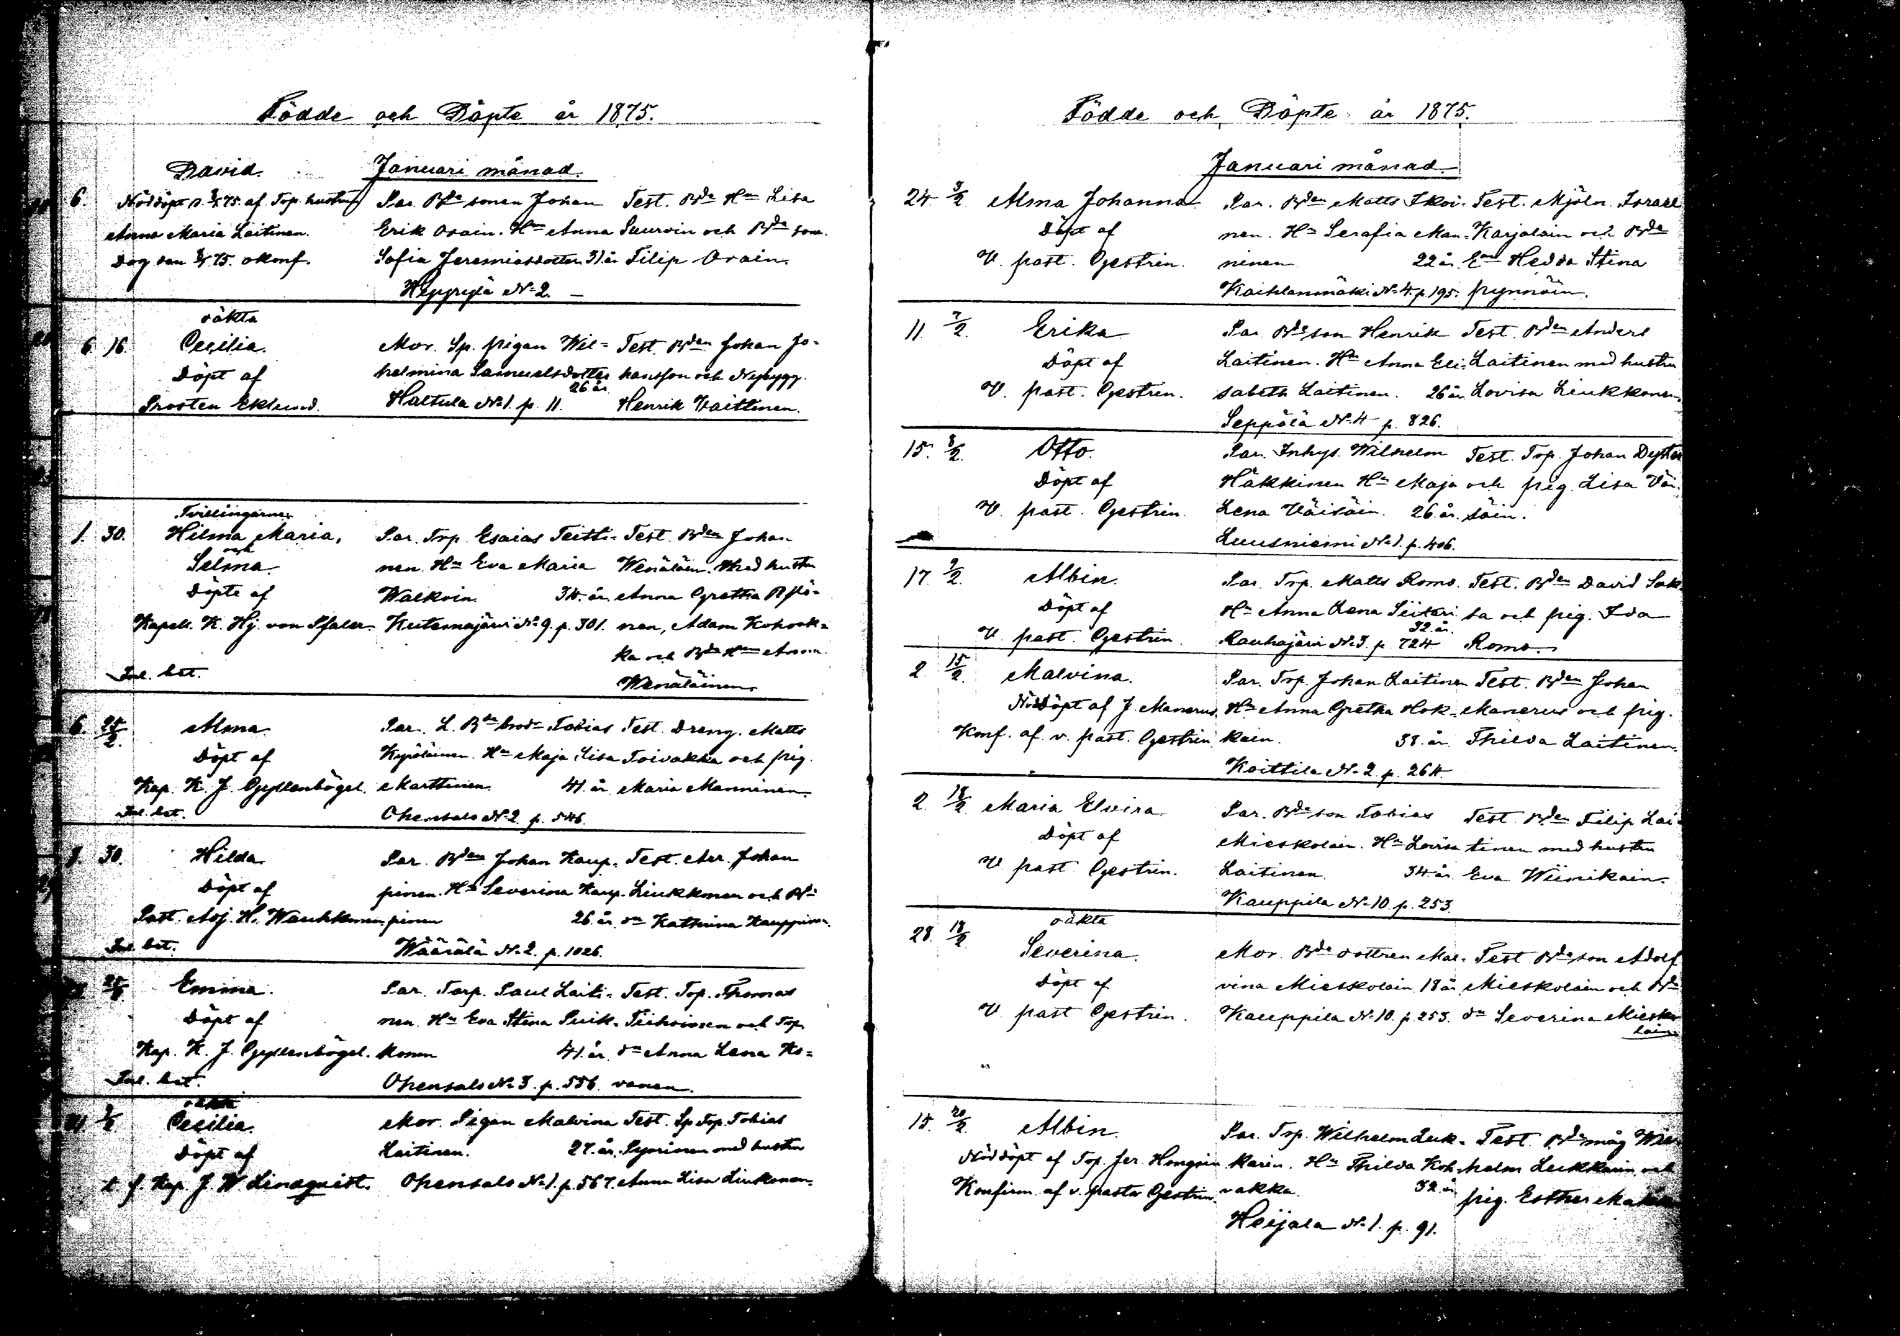 Födde och Döpte år 1875.
Januari månad.
David.
6.
Nöddöpt af Torp. hustru
Anna Maria Laitinen.
Dog den 75. okonf.
Par. Bde sonen Johan
Erik Orain. Hn Anna
Sofia Jeremiasdotter 31 år
Heppylä No 2.
Test. Bde Hn Lisa
Suuroin och Bde son.
Filip Orain.
6 16.
oäkta
Cecilia.
Döpt af
Prosten Eklund.
Mor. Sp. pigan Wil=
helmina Samuelsdotter
26 år
Haltula No 1. p. 11.
Test. Bden Johan Jo-
hansson och Nybygg.
Henrik Vaittinen.
1. 30.
Tvillingarne
Hilma Maria,
och
Selma.
Döpte af
Kapell. K. Hj. von Pfaler.
Inl. bet.
Par. Torp. Esaias Teitti-
nen. Hn Eva Maria
Walkoin. 34. år
Kutemajärvi No 9. p. 301.
Test. Bden Johan
Wenäläin. Med hustru
Anna Gretha
nen, Adam Kokork=
ka och Bde Hn Anna
Wenäläinen.
6. 25/2.
Alma.
Döpt af
Kap. K. J. Gyllenbögel.
Inl. bet.
Par. L. Bde brodr Tobias
Kypöläinen. Hn Maja Lisa
Marttinen. 41. år
Ohensalo No 2. p. 546.
Test. Dreng. Matts
Toivakka och pig.
Maria Manninen.
30.
Hilda.
Döpt af
Past. Adj. H. Wauhkonen
Inl. bet.
Par. Bden Johan Kaup-
pinen. Hn Severina Kaup-
pinen 26 år.
Wäärälä No 2. p. 1026.
Test. Arr. Johan
Liukkonen och Bde
dn Kathrina Kauppinen.
Emma.
Döpt af
Kap. K. J. Gyllenbögel.
Inl. bet.
Par. Torp. Paul Laiti-
nen. Hn Eva Stina Puik-
konen 41. år
Ohensalo No 3. p. 556.
Test. Torp. Thomas
Tiihoinen och Torp.
dn Anna Lena Ko=
vanen.
oäkta
Cecilia.
Döpt af
t. f. Kap. J. W. Lindquist.
Mor. Pigan Malvina
Laitinen. 27. år.
Ohensalo No 1. p. 567.
Test. Sp. Torp. Tobias
Pyninen med hustru
Anna Lisa Liukkonen.
Födde och Döpte år 1875.
Januari månad.
24 3/2
Alma Johanna.
Döpt af
V. past. Gestrin.
Par. Bden Matts Ikoi-
nen. Hn Serafia Man-
ninen 22 år.
Kaihlanmäki No 4. p. 195.
Test. Mjöln. Israel
Karjalain och Bde
En Hedda Stina
Pynnöin.
11 7/2
Erika
Döpt af
V. past. Gestrin.
Par. Bde son Henrik
Laitinen. Hn Anna Eli-
sabeth Laitinen. 26 år.
Seppälä No 4 p. 826.
Test. Bden Anders
Laitinen med hustru
Lovisa Liukkonen.
15. 8/2.
Otto.
Döpt af
V. past. Gestrin
Par. Inhys. Wilhelm
Häkkinen Hn Maja
Lena Wäisäin. 26 år.
Luusniemi No 1. p. 406.
Test. Torp. Johan Dyster
och pig. Lisa Väi-
säin.
17. 9/2.
Albin.
Döpt af
V. past. Gestrin
Par. Torp. Matts Romo.
Hn Anna Lena Siitari
32 år.
Rauhajärvi No 3. p. 724
Test. Bden David Sak-
sa och pig. Ida
Romo.
2 15/2.
Malvina.
Nöddöpt af J. Manerus.
Konf. af v. past. Gestrin
Par. Torp. Johan Laitinen
Hn Anna Gretha Hok-
kain. 38. år
Koittila No 2. p. 264
Test. Bden Johan
Manerus och pig.
Thilda Laitinen.
2. 18/2
Maria Elvira
Döpt af
V past Gestrin.
Par. Bde son Tobias
Mieskolain. Hn Lovisa
Laitinen. 34 år
Kauppila No 10. p. 253.
Test. Bden Filip Lai-
tinen med hustru
Eva Wiinikain.
28 18/2
oäkta
Severina.
Döpt af
V. past Gestrin.
Mor. Bde dottren Mal-
vina Mieskolain 18 år
Kauppila No 10. p. 253.
Test Bde son Adolf
Mieskolain och Bde
dn Severina Miesko
lain
15. 20/2
Albin.
Nöddöpt af Torp. Jer. Hongoin
Konfirm. af v. pastor Gestrin.
Par. Torp. Wilhelm Luk-
karin. Hn Thilda Koh
vakka. 32 år
Heijala No 1. p. 91.
Test. Bde måg Wil-
helm Lukkarin och
pig. Esther